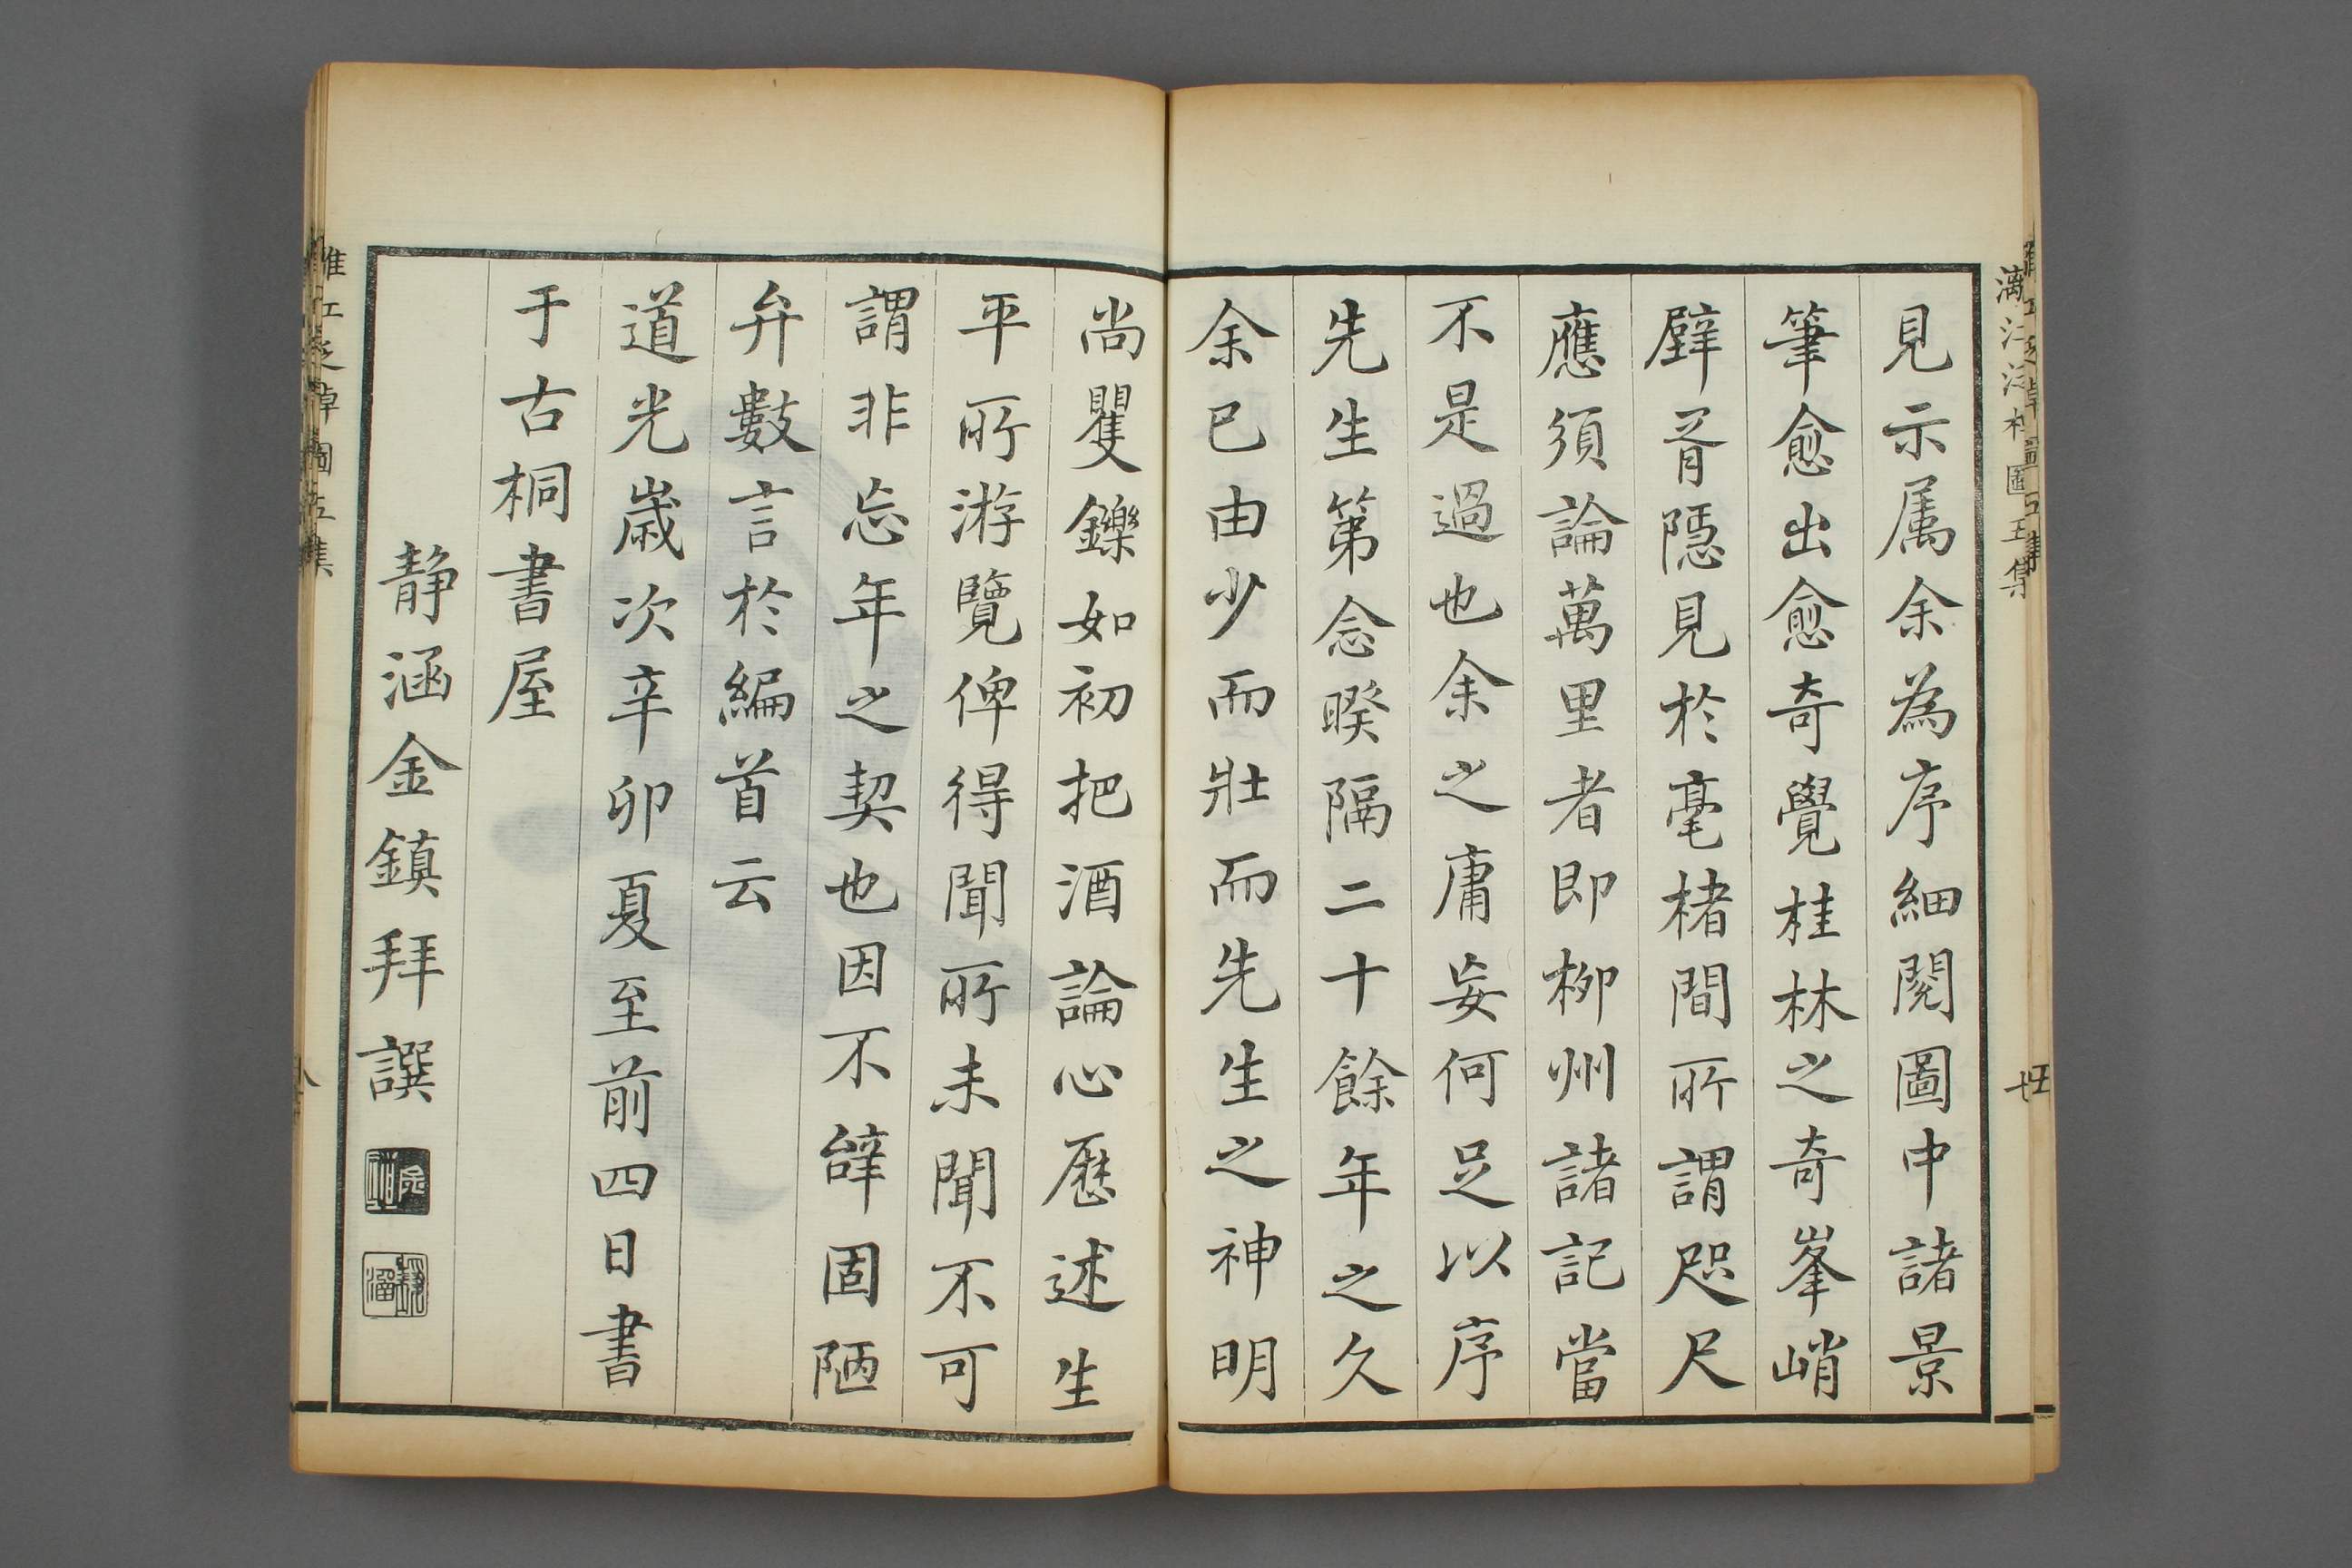 見示属余為序細閱圖中諸景
筆愈出愈奇覺桂林之奇峯峭
壁胥隱見於毫楮間所謂咫尺
應須論萬里者即柳州諸記當
不是過也余之庸妄何足以序
先生第念暌隔二十餘年之久
余已由少而壯而先生之神明
尚矍鑠如初把酒論心歷述生
平所游覽俾得聞所未聞不可
謂非忘年之契也因不辭固陋
弁數言於編首云
道光歲次辛卯夏至前四日書
于古桐書屋
静涵金鎮拜譔